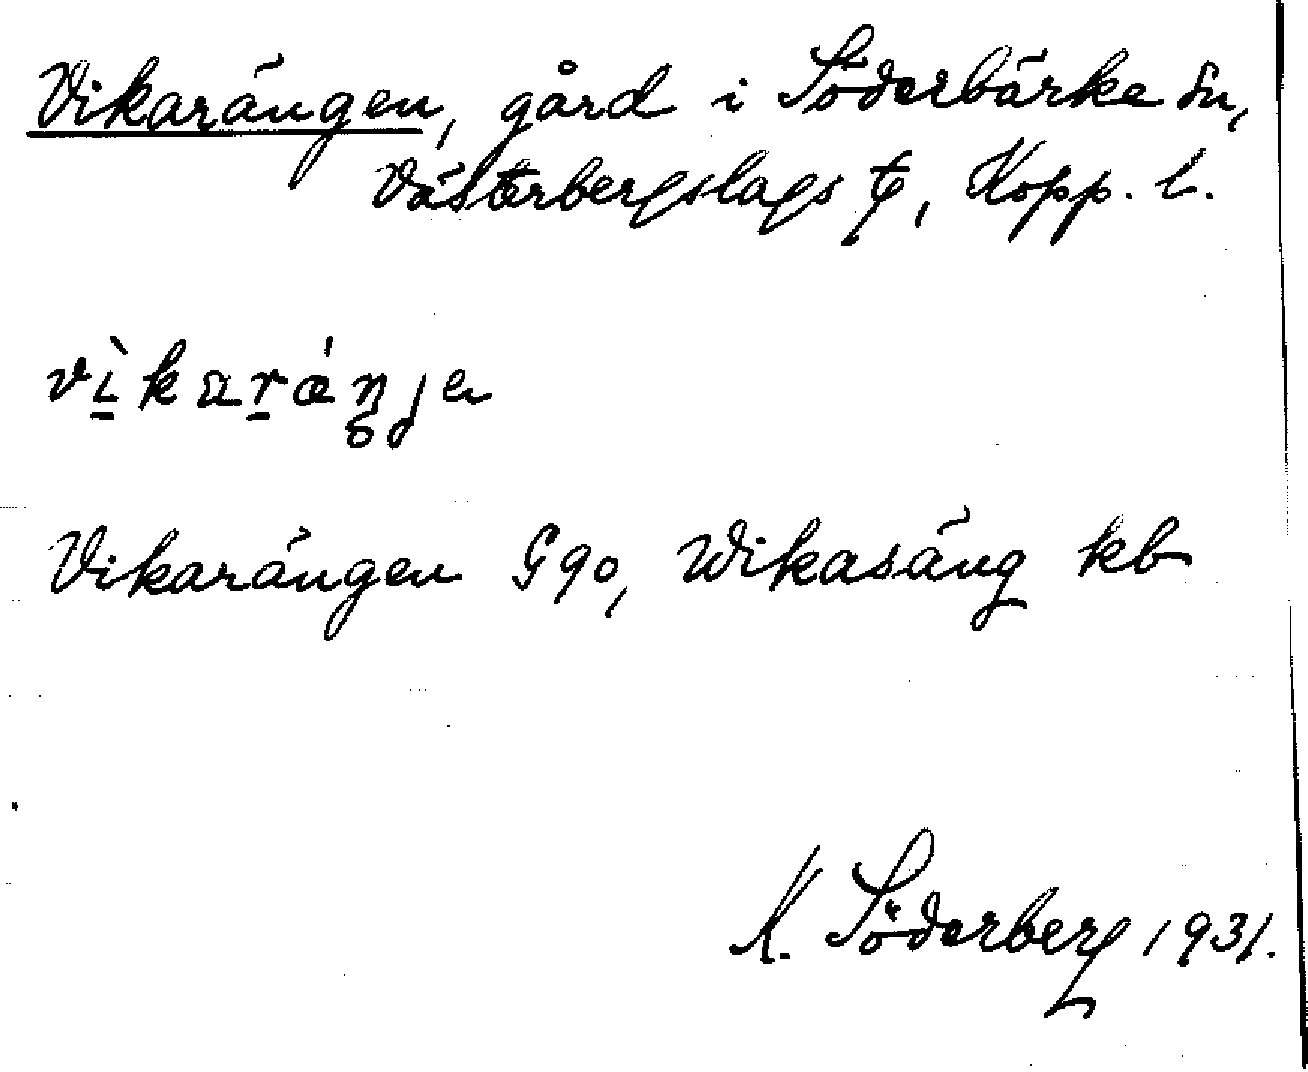 Vikarängen, gård i Söderbärke sn,
Västerbergslags t, Kopp. l.
vìkarǽŋjen
Vikarängen G 90, Wikasäng kb
K. Söderberg 1931.